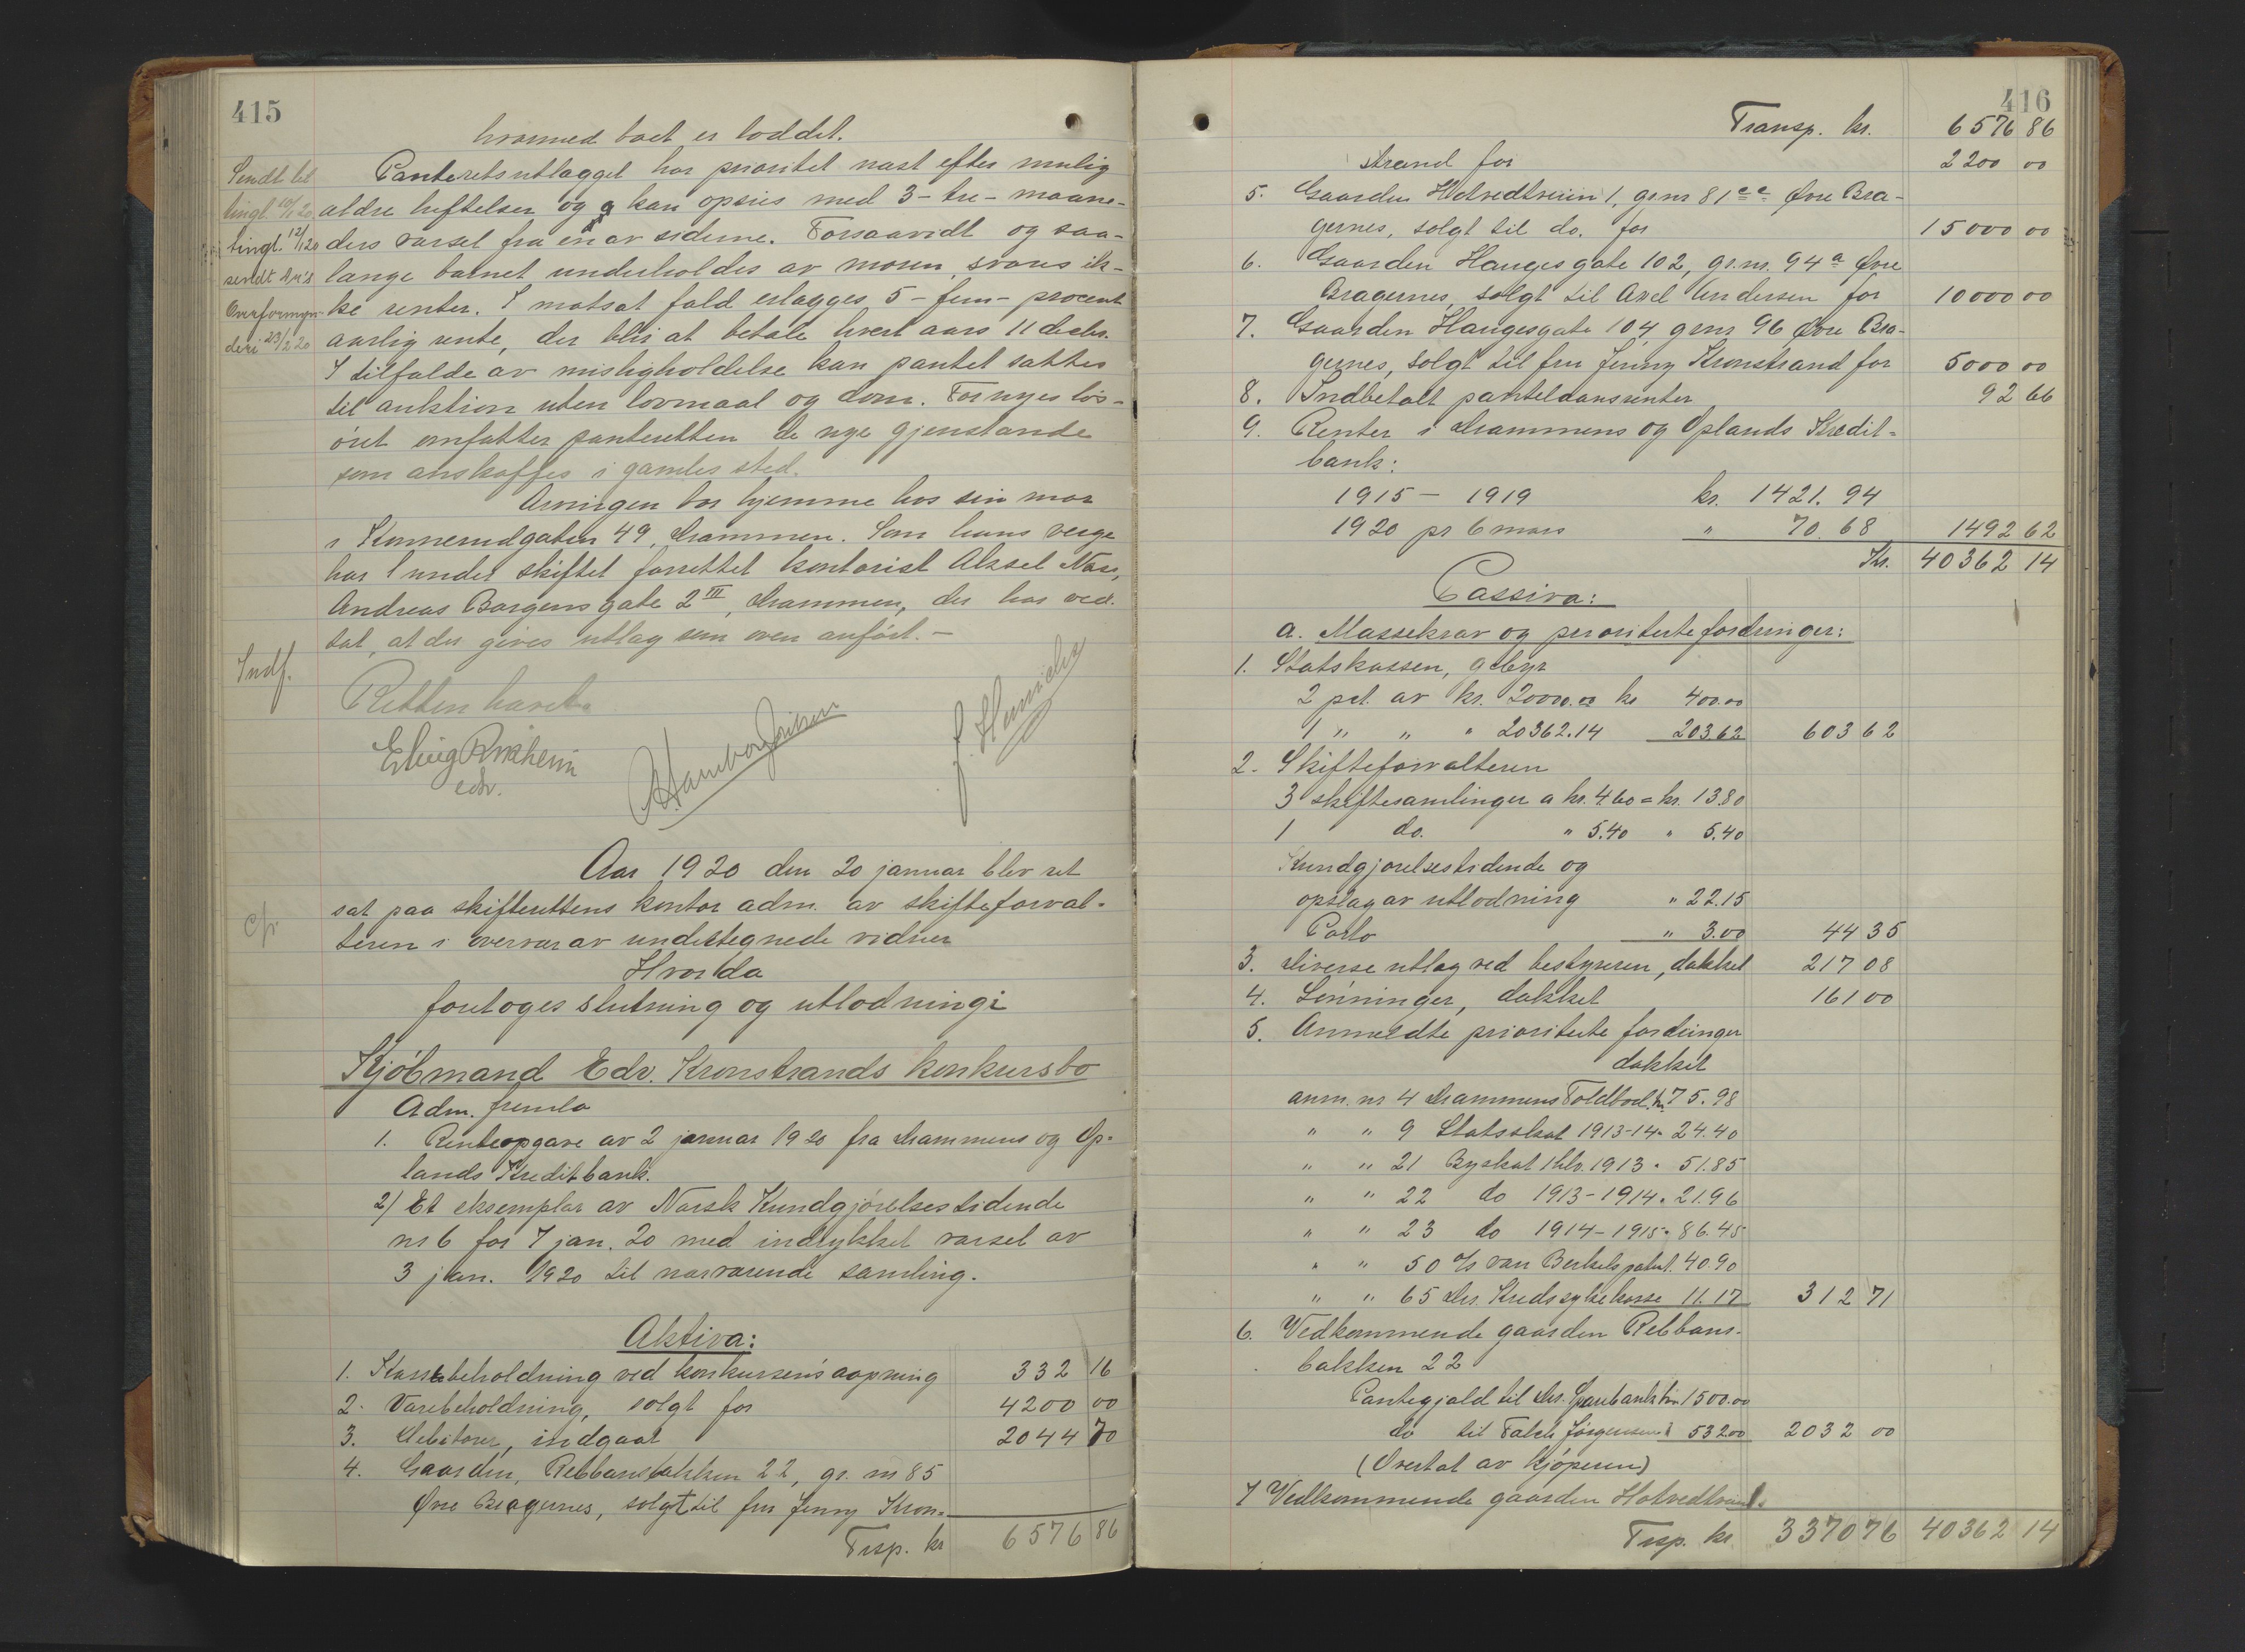 415
hvormed boet er loddet.
Sendt til
Panteretsutlægget har prioritet næst efter mulig
tingl. 10/1 20
ældre heftelser og kan opsies med 3 - tre - maane-
tingl. 12/1 20
ders varsel fra en av siderne. Forsaavidt og saa-
sendt Dr's
længe barnet underholdes av moren, svares ik-
Overformyn-
ke renter. I motsat fald erlægges 5 - fem - procent
deri 23/2 20
aarlig rente, der blir at betale hvert aars 11 decbr.
I tilfælde av misligholdelse kan pantet sættes
til auktion uten lovmaal og dom. Fornyes løs-
øret omfatter panteretten de nye gjenstande
som anskaffes i gamles sted.
Arvingen bor hjemme hos sin mor
i Konnerudgaten 49, Drammen. Som hans verge
har under skiftet forrettet kontorist Aksel Næss,
Andreas Borgens gate 2 III, Drammen, der har ved-
tat, at der gives utlæg som oven anført. -
Indf.
Retten hævet.
Aar 1920 den 20 januar blev ret
sat paa skifterettens kontor adm. av skifteforval-
teren i overvær av undertegnede vidner
Hvorda
foretoges slutning og utlodning i
Kjøbmand Edv. Kronstrands konkursbo
Adm. fremla
1. Renteopgave av 2 januar 1920 fra Drammens og Op-
lands Kreditbank.
2) Et eksemplar av Norsk Kundgjørelsestidende
nr 6 for 7 jan. 20 med indrykket varsel av
3 jan. 1920 til nærværende samling.
Aktiva:
1. Kassebeholdning ved konkursens aapning 332 16
2. Varebeholdning, solgt for 4200 00
3. Debitorer, indgaat 2044 70
4. Gaarden, Rebbansbakken 22, gr. nr 85
Øvre Bragernes, solgt til fru Jenny Kron-
Trsp. kr 6576 86
416
Transp. kr. 6576 86
strand for 2200 00
5. Gaarden Hotvedtveien 1, gr nr 81 Øvre Bra-
gernes, solgt til do. for 15000 00
6. Gaarden Haugesgate 102, gr. nr. 94 a Øvre
Bragernes, solgt til Axel Andersen for 10000 00
7. Gaarden Haugesgate 104, gr nr 96 Øvre Bra-
gernes, solgt til fru Jenny Kronstrand for 5000 00
8. Indbetalt panteldansrenter 92 66
9. Renter i Drammens og Oplands Kredit-
bank:
1915 - 1919 kr. 1421.94
1920 pr 6 mars " 70.68 1492 62
Kr. 40362 14
Passiva:
a. Massekrav og prioriterte fordringer:
1. Statskassen, gebyr
2 pct. av kr. 20000.00 kr 400.00
1 " " " 20362.14 203.62 603 62
2. Skifteforvalteren
3 skiftesamlinger a kr. 4.60 = kr. 13.80
1 do. " 5.40 " 5.40
Kundgjørelsestidende og
opslag av utlodning " 22.15
Porto " 3.00 44 35
3. Diverse utlæg ved bestyreren, dækket 217 08
4. Lønninger, dækket 161 00
5. Anmeldte prioriterte fordringer
dækket
anm. nr 4 Drammens Toldbod. kr. 75.98
" " 9 Statsskat 1913-14 " 24.40
" " 21 Byskat 1 hlv. 1913 " 51.85
" " 22 do 1913-1914 " 21.96
" " 23 do 1914-1915 " 86.45
" " 50 A/S van Berkels patent. 40.90
" " 65 Dr. Kredssykekasse 11.17 312 71
6. Vedkommende gaarden Rebbans-
bakken 22
Pantegjæld til Dr. Sparebank kr. 1500.00
do til Falch Jørgensen " 532.00 2032 00
(Overtat av kjøperen)
7 Vedkommende gaarden Hotvedtvei 1.
Trsp. kr. 3370 76 40362 14